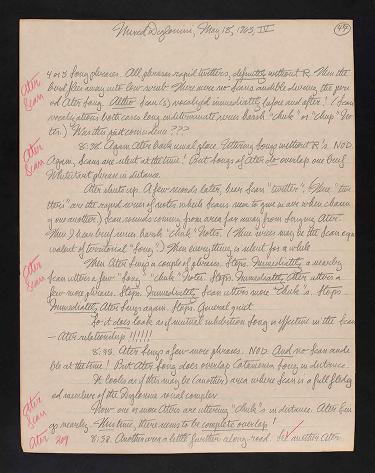 Mixed Diglossini, May 18, 1965, IV
49
4 or 5 Song phrases. All phrases rapid twitters, definitely without R. Then the
bird flies away into low scrub. There were no Scans audible during the
ed Ater Song. Altho Scan(s) vocalized immediately before and after! (Scan
vocalizations both cases long indeterminate series harsh "chuk" or "chup" No-
tes.) Was this just coincidence???
Ater
Scan
8:32. Again Ater back usual place. Uttering Songs without R's. NOD.
Again, Scans are silent at the time! But Songs of Ater do overlap one brief
phrase in distance.
Ater
Scan
Ater shuts up. A few seconds later, hear Scan "twitter". (These "twit-
ters" are the rapid series of notes which Scans seem to give in air when chasing
one another.) Scan sounds coming from area far away from singing Ater.
Then I hear brief series harsh "chuk" Notes. (These series may be the Scan equi-
valent of territorial "Song".) Then everything is silent for a while.
Then Ater Sings a couple of phrases. Stops. Immediately a nearby
Scan utters a few "Song" "chuk" Notes. Stops. Immediately Ater utters a
few more phrases. Stops. Immediately Scan utters more "Chuk"s. Stops.
Immediately Ater Sings again. Stops. General quiet.
Ater
Scan
So it does look as if mutual inhibition Song is effective in the Scan
- Ater relationship!!!!!!
8:45. Ater Sings a few more phrases. NOD. And no Scan audi-
ble at the time! But Ater Song does overlap Catamenia Song in distance.
It looks as if this may be (another) area where Scan is a full fledg-
ed member of the Diglossa social complex.
Now one or more Aters are uttering "Chuk"s in distance. Ater Sin-
gs nearby. This time, there seems to be complete overlap!
Ater
Scan
8:58. Another area a little further along road. See another Ater
Ater 209